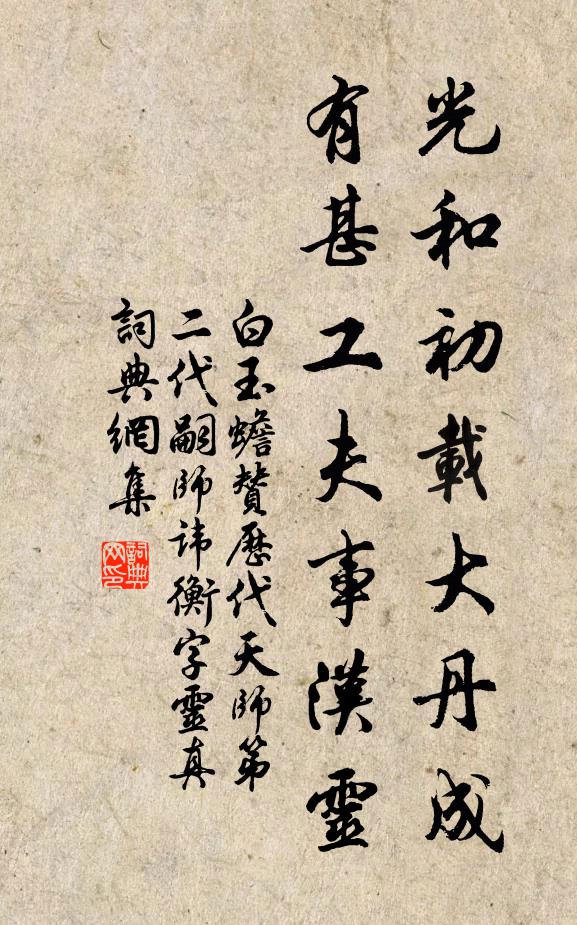 光和初載大丹成
有甚工夫事漢靈
白玉蟾贊歷代天師第
二代嗣師諱衡字靈真
詞典網集
詞典
网印